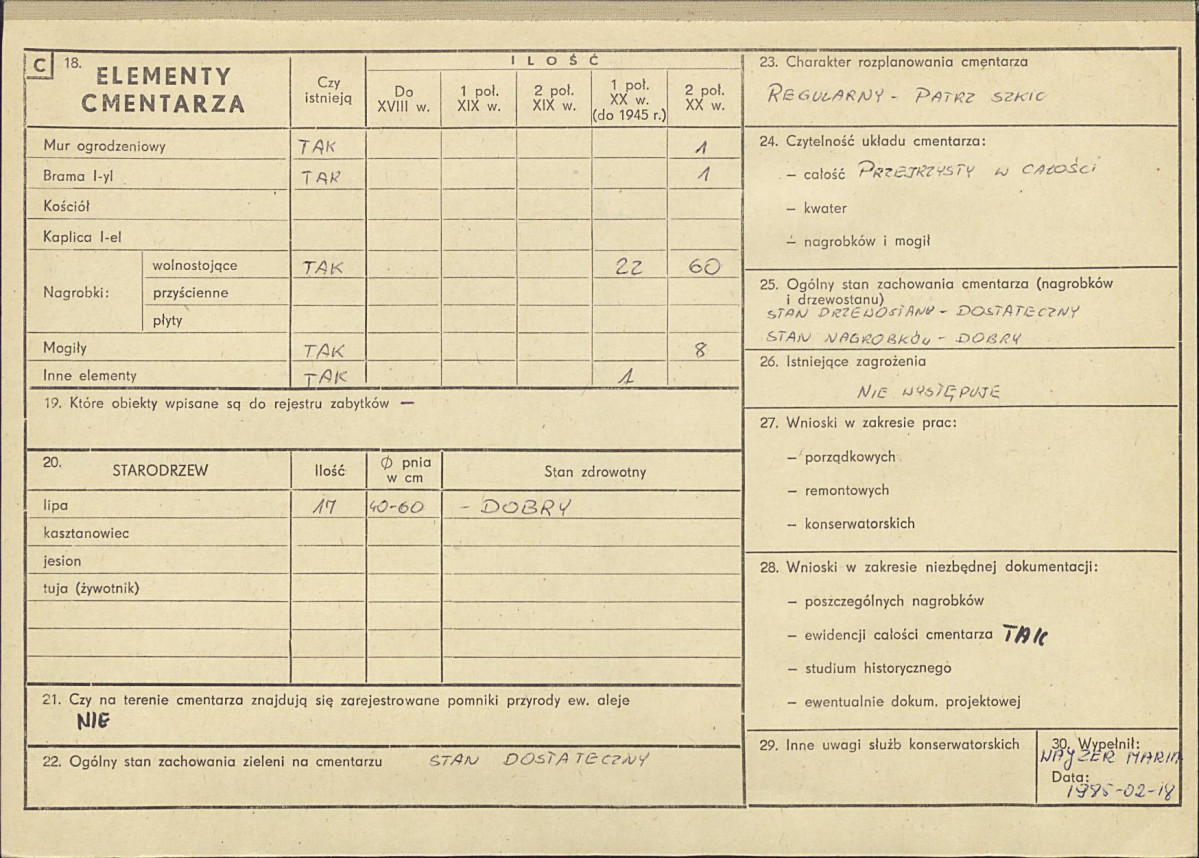 C 18. ELEMENTY CMENTARZA
Czy istnieją
ILOŚĆ
Do XVIII w.
1 poł. XIX w.
2 poł. XIX w.
1 poł. XX w. (do 1945 r.)
2 poł. XX w.
Mur ogrodzeniowy TAK 1
Brama I-yl TAK 1
Kościół
Kaplica I-el
Nagrobki:
wolnostojące TAK 22 60
przyścienne
płyty
Mogiły TAK 8
Inne elementy TAK 1
19. Które obiekty wpisane są do rejestru zabytków —
20. STARODRZEW Ilość Ø pnia w cm Stan zdrowotny
lipa 17 40-60 - DOBRY
kasztanowiec
jesion
tuja (żywotnik)
21. Czy na terenie cmentarza znajdują się zarejestrowane pomniki przyrody ew. aleje
NIE
22. Ogólny stan zachowania zieleni na cmentarzu STAN DOSTATECZNY
23. Charakter rozplanowania cmentarza
REGULARNY - PATRZ SZKIC
24. Czytelność układu cmentarza:
— całość PRZEJRZYSTY W CAŁOŚCI
— kwater
— nagrobków i mogił
25. Ogólny stan zachowania cmentarza (nagrobków
i drzewostanu)
STAN DRZEWOSTANU - DOSTATECZNY
STAN NAGROBKÓW - DOBRY
26. Istniejące zagrożenia
NIE WYSTĘPUJE
27. Wnioski w zakresie prac:
— porządkowych
— remontowych
— konserwatorskich
28. Wnioski w zakresie niezbędnej dokumentacji:
— poszczególnych nagrobków
— ewidencji całości cmentarza TAK
— studium historycznego
— ewentualnie dokum. projektowej
29. Inne uwagi służb konserwatorskich
30. Wypełnił:
WAJZER MARIA
Data:
1985-02-18